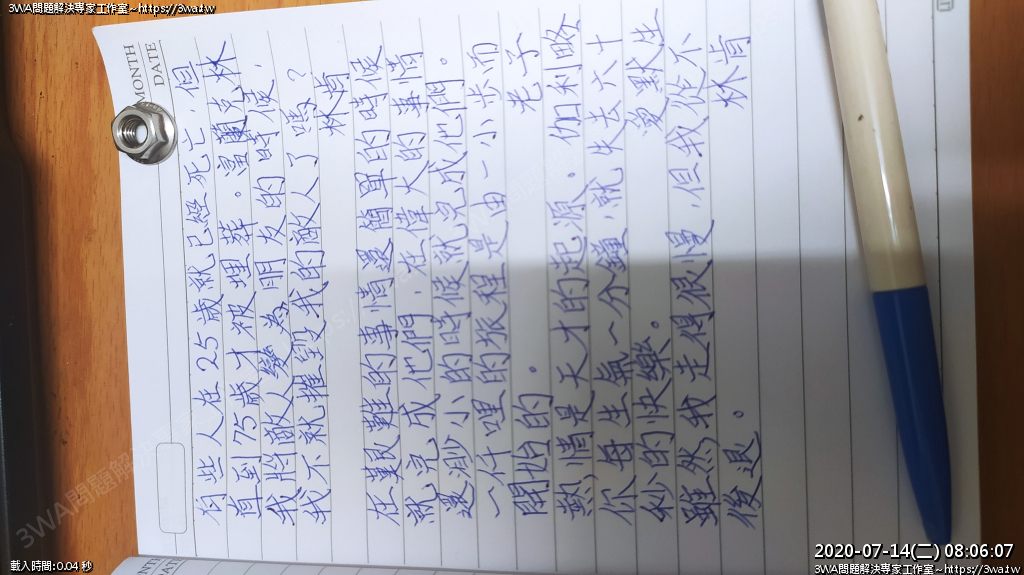 3WA問題解決專家工作室~https://3wa.tw
3WA問題解決專家工作室~https://3wa.tw
MONTH
DATE
有些人在25歲就已經死亡,但
直到75歲才被埋葬。富蘭克林
我將敵人變為朋友的時候,
我不就摧毀我的敵人了嗎?
林肯
在艱難的事情還簡單的時候
就完成他們,在偉大的事情
還渺小的時候就完成他們。
一千哩的旅程是由一小步而
開始的。 老子
熱情是天才的起源。伽利略
你每生氣一分鐘,就失去六十
秒的快樂。 愛默生
雖然我走得很慢,但我從不
後退。 林肯
載入時間:0.04 秒
2020-07-14(二) 08:06:07
3WA問題解決專家工作室~https://3wa.tw